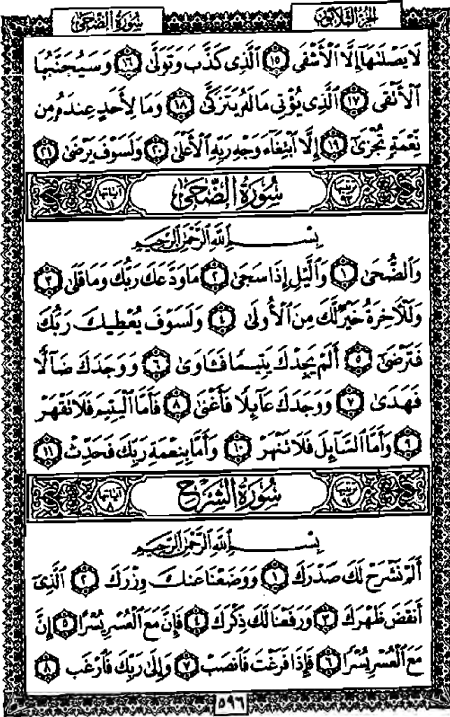 الجزء الثلاثون سورة الضحى
لَا يَصْلَىٰهَآ إِلَّا ٱلْأَشْقَى ١٥ ٱلَّذِى كَذَّبَ وَتَوَلَّىٰ ١٦ وَسَيُجَنَّبُهَا
ٱلْأَتْقَى ١٧ ٱلَّذِى يُؤْتِى مَالَهُۥ يَتَزَكَّىٰ ١٨ وَمَا لِأَحَدٍ عِندَهُۥ مِن
نِّعْمَةٍ تُجْزَىٰٓ ١٩ إِلَّا ٱبْتِغَآءَ وَجْهِ رَبِّهِ ٱلْأَعْلَىٰ ٢٠ وَلَسَوْفَ يَرْضَىٰ ٢١
ترتيبها ٩٣ سورة الضحى آياتها ١١
بِسْمِ ٱللَّهِ ٱلرَّحْمَٰنِ ٱلرَّحِيمِ
وَٱلضُّحَىٰ ١ وَٱلَّيْلِ إِذَا سَجَىٰ ٢ مَا وَدَّعَكَ رَبُّكَ وَمَا قَلَىٰ ٣
وَلَلْأَخِرَةُ خَيْرٌ لَّكَ مِنَ ٱلْأُولَىٰ ٤ وَلَسَوْفَ يُعْطِيكَ رَبُّكَ
فَتَرْضَىٰٓ ٥ أَلَمْ يَجِدْكَ يَتِيمًا فَـَٔاوَىٰ ٦ وَوَجَدَكَ ضَآلًّا
فَهَدَىٰ ٧ وَوَجَدَكَ عَآئِلًا فَأَغْنَىٰ ٨ فَأَمَّا ٱلْيَتِيمَ فَلَا تَقْهَرْ
٩ وَأَمَّا ٱلسَّآئِلَ فَلَا تَنْهَرْ ١٠ وَأَمَّا بِنِعْمَةِ رَبِّكَ فَحَدِّثْ ١١
ترتيبها ٩٤ سورة الشرح آياتها ٨
بِسْمِ ٱللَّهِ ٱلرَّحْمَٰنِ ٱلرَّحِيمِ
أَلَمْ نَشْرَحْ لَكَ صَدْرَكَ ١ وَوَضَعْنَا عَنكَ وِزْرَكَ ٢ ٱلَّذِىٓ
أَنقَضَ ظَهْرَكَ ٣ وَرَفَعْنَا لَكَ ذِكْرَكَ ٤ فَإِنَّ مَعَ ٱلْعُسْرِ يُسْرًا ٥ إِنَّ
مَعَ ٱلْعُسْرِ يُسْرًا ٦ فَإِذَا فَرَغْتَ فَٱنصَبْ ٧ وَإِلَىٰ رَبِّكَ فَٱرْغَب ٨
٥٩٦